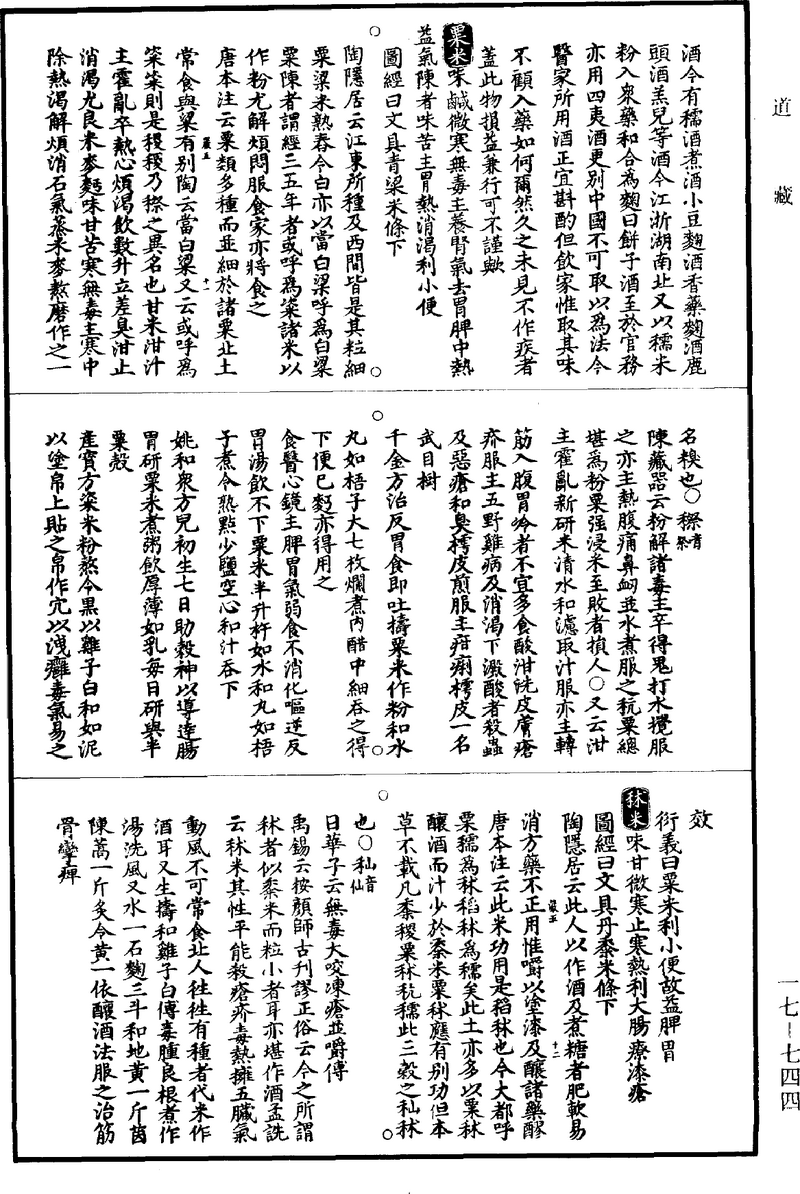 道藏
酒今有糯酒煮酒小豆麴酒香藥麴酒鹿
頭酒羔兒等酒今江浙湖南北又以糯米
粉入衆藥和合為麴曰餅子酒至於官務
亦用四夷酒更别中國不可取以為法今
醫家所用酒正宜斟酌但飲家惟取其味
不顧入藥如何爾然久之未見不作疾者
蓋此物損益兼行可不謹歟
粟米味鹹微寒無毒主養腎氣去胃脾中熱
益氣陳者味苦主胃熱消渴利小便
圖經曰文具青粱米條下
陶隱居云江東所種及西間皆是其粒細
粟粱米熟舂令白亦以當白粱呼為白粱
粟陳者謂經三五年者或呼為粢諸米以
作粉尤解煩悶服食家亦將食之
唐本注云粟類多種而並細於諸粟北土
常食與粱有别陶云當白粱又云或呼為
粢粢則是稷稷乃穄之異名也甘米泔汁
主霍亂卒熱心煩渴飲數升立差臭泔止
消渴尤良米麥麨味甘苦寒無毒主寒中
除熱渴解煩消石氣蒸米麥熬磨作之一
名糗也○穄音祭
陳藏器云粉解諸毒主卒得鬼打水攪服
之亦主熱腹痛鼻衄並水煮服之秔粟總
堪為粉粟强浸米至敗者損人○又云泔
主霍亂新研米清水和濾取汁服亦主轉
筋入腹胃冷者不宜多食酸泔洗皮膚瘡
疥服主五野雞病及消渴下澱酸者殺蟲
及惡瘡和臭樗皮煎服主疳痢樗皮一名
武目樹
千金方治反胃食即吐擣粟米作粉和水
丸如梧子大七枚爛煮内醋中細吞之得
下便已麪亦得用之
食醫心鏡主脾胃氣弱食不消化嘔逆反
胃湯飲不下粟米半升杵如水和丸如梧
子煮令熟點少鹽空心和汁吞下
姚和衆方兒初生七日助穀神以導達腸
胃研粟米煮粥飲厚薄如乳每日研與半
粟殼
産寶方粢米粉熬令黑以雞子白和如泥
以塗帛上貼之帛作穴以洩癰毒氣易之
效
衍義曰粟米利小便故益脾胃
秫米味甘微寒止寒熱利大腸療漆瘡
圖經曰文具丹黍米條下
陶隱居云此人以作酒及煮糖者肥軟易
消方藥不正用惟嚼以塗漆及釀諸藥醪
唐本注云此米功用是稻秫也今大都呼
粟糯為秫稻秫為糯矣此土亦多以粟秫
釀酒而汁少於黍米粟秫應有别功但本
草不載凡黍稷粟秫秔糯此三穀之秈秫
也○秈音仙
日華子云無毒大咬凍瘡並嚼傅
禹錫云按顔師古刊謬正俗云今之所謂
秫者似黍米而粒小者耳亦堪作酒孟詵
云秫米其性平能殺瘡疥毒熱擁五臟氣
動風不可常食北人往往有種者代米作
酒耳又生擣和雞子白傅毒腫良根煮作
湯洗風又水一石麴三斗和地黃一斤茵
陳蒿一斤炙令黃一依釀酒法服之治筋
骨攣痺
一七—七四四